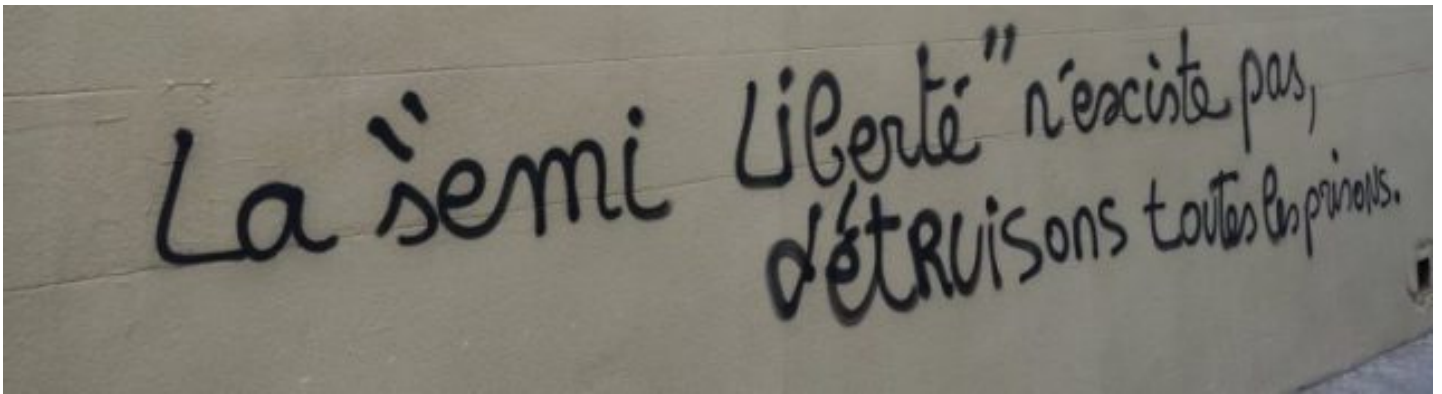 La "semi Liberté" n'existe pas,
détruisons toutes les prisons.